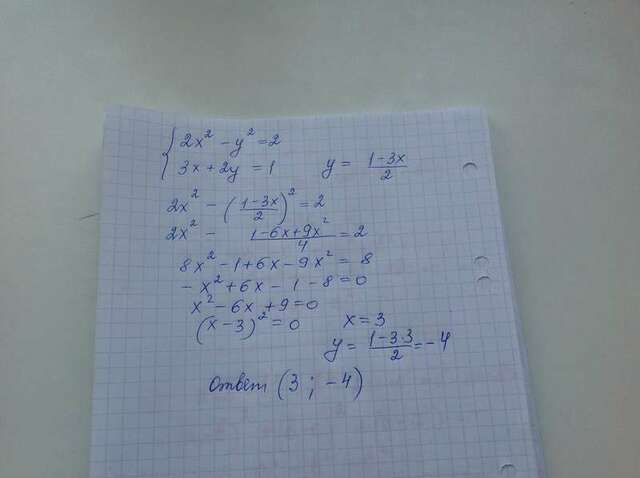 { 2x² - y² = 2
3x + 2y = 1 y = (1-3x)/2
2x² - ((1-3x)/2)² = 2
2x² - (1-6x+9x²)/4 = 2
8x² - 1 + 6x - 9x² = 8
- x² + 6x - 1 - 8 = 0
x² - 6x + 9 = 0
(x-3)² = 0 x = 3
y = (1-3·3)/2 = -4
Ответ (3 ; -4)